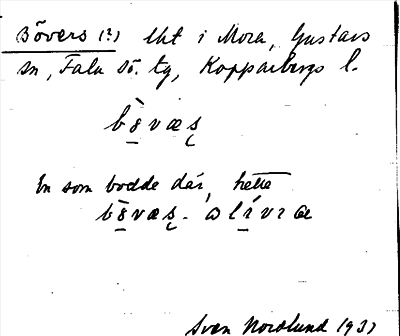 Bövers (?) lht i Mora, Gustavs
sn, Falu sö. tg, Kopparbergs l.
En som bodde där, hette
Sven Nordlund 1937